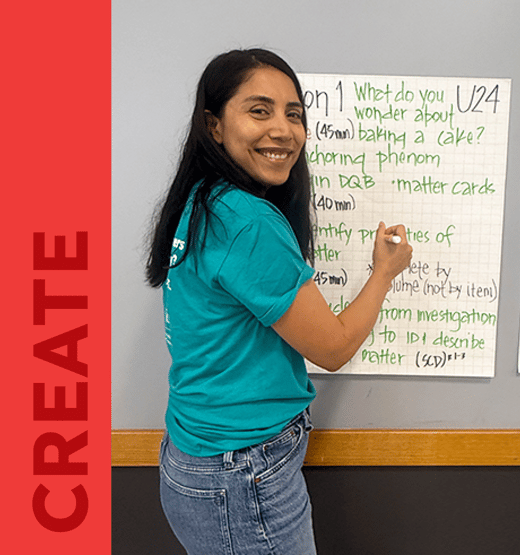 CREATE
on 1 What do you U24
wonder about
(45min) baking a cake?
choring phenom
in DQB • matter cards
(40min)
entify pr ties of
tter
45min) ete by
olume (not by item)
from investigation
g to ID & describe
matter (SCD)